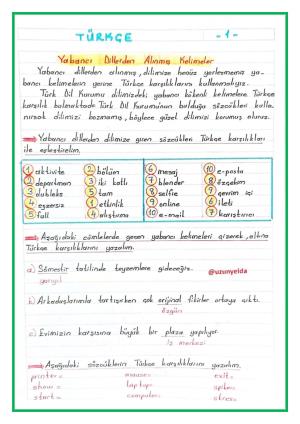 TÜRKÇE -1-
Yabancı Dillerden Alınmış Kelimeler
Yabancı dillerden alınmış, dilimize henüz yerleşmemiş ya-
bancı kelimelerin yerine Türkçe karşılıklarını kullanmalıyız.
Türk Dil Kurumu dilimizdeki yabancı kökenli kelimelere Türkçe
karşılık bulmaktadır. Türk Dil Kurumunun bulduğu sözcükleri kulla-
nırsak dilimizi bozmamış, böylece güzel dilimizi korumuş oluruz.
Yabancı dillerden dilimize giren sözcükleri Türkçe karşılıkları
ile eşleştirelim.
1 aktivite 2 bölüm 6 mesaj 10 e-posta
2 departman 3 iki katlı 7 blender 8 özçekim
3 dubleks 5 tam 8 selfie 9 çevrim içi
4 egzersiz 1 etkinlik 9 online 6 ileti
5 full 4 alıştırma 10 e-mail 7 karıştırıcı
Aşağıdaki cümlelerde geçen yabancı kelimeleri çizerek, altına
Türkçe karşılıklarını yazalım.
a) Sömestir tatilinde teyzemlere gideceğiz. @uzunyelda
yarıyıl
b) Arkadaşlarımla tartışırken çok orijinal fikirler ortaya çıktı.
özgün
c) Evimizin karşısına büyük bir plaza yapılıyor.
iş merkezi
Aşağıdaki sözcüklerin Türkçe karşılıklarını yazalım.
printer= mouse= exit=
show= laptop= spiker=
start= computer= stres=